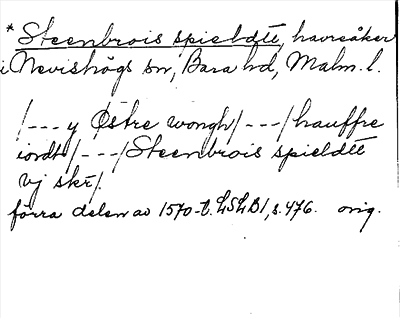 * Steenbrois spieldtt, havreåker
i Nevishögs sn, Bara hd, Malm. l.
/---y Østre wongh/---/hauffre
iordt/---/Steenbrois spieldtt
vj skr/.
förra delen av 1570-t. LSLB1, s. 476. orig.